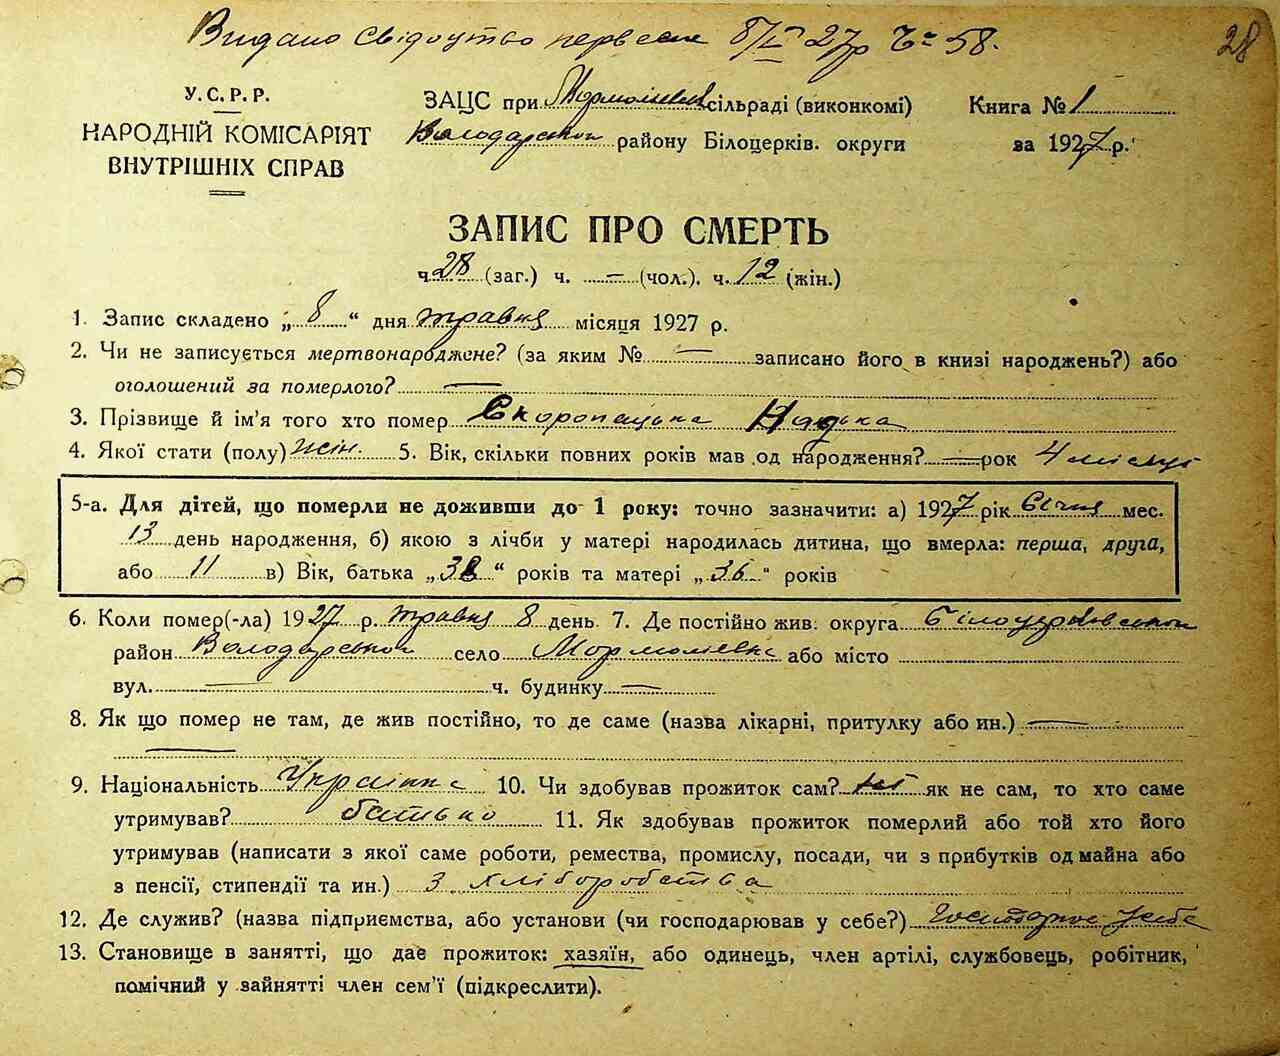 Видано свідоцтво первесне 8/V 27р Ч= 58.
28
У.С.Р.Р.
НАРОДНІЙ КОМІСАРІЯТ
ВНУТРІШНІХ СПРАВ
ЗАЦС при Мармоліївск сільраді (виконкомі)
Володарськой району Білоцерків. округи
Книга № 1
за 1927 р.
ЗАПИС ПРО СМЕРТЬ
ч. 28 (заг.) ч. — (чол.). ч. 12 (жін.)
1. Запис складено „ 8 “ дня травня місяця 1927 р.
2. Чи не записується мертвонароджене? (за яким № — записано його в книзі народжень?) або
оголошений за померлого? —
3. Прізвище й ім’я того хто помер Скоропацька Надька
4. Якої стати (полу) жін. 5. Вік, скільки повних років мав од народження? — рок 4 місяці
5-а. Для дітей, що померли не доживши до 1 року: точно зазначити: а) 1927 рік Січня мес.
13 день народження, б) якою з лічби у матері народилась дитина, що вмерла: перша, друга,
або 11 в) Вік, батька „38“ років та матері „36“ років
6. Коли помер(-ла) 1927 р. травня 8 день. 7. Де постійно жив: округа Білоцерковськой
район Володарськой село Мармоліївка або місто
вул. — ч. будинку —
8. Як що помер не там, де жив постійно, то де саме (назва лікарні, притулку або ин.) —
—
9. Національність Українка 10. Чи здобував прожиток сам? ні як не сам, то хто саме
утримував? батько 11. Як здобував прожиток померлий або той хто його
утримував (написати з якої саме роботи, ремества, промислу, посади, чи з прибутків од майна або
з пенсії, стипендії та ин.) З хліборобства
12. Де служив? (назва підприємства, або установи (чи господарював у себе?) Господарює у себе
13. Становище в занятті, що дає прожиток: хазяїн, або одинець, член артілі, службовець, робітник,
помічний у зайнятті член сем’ї (підкреслити).